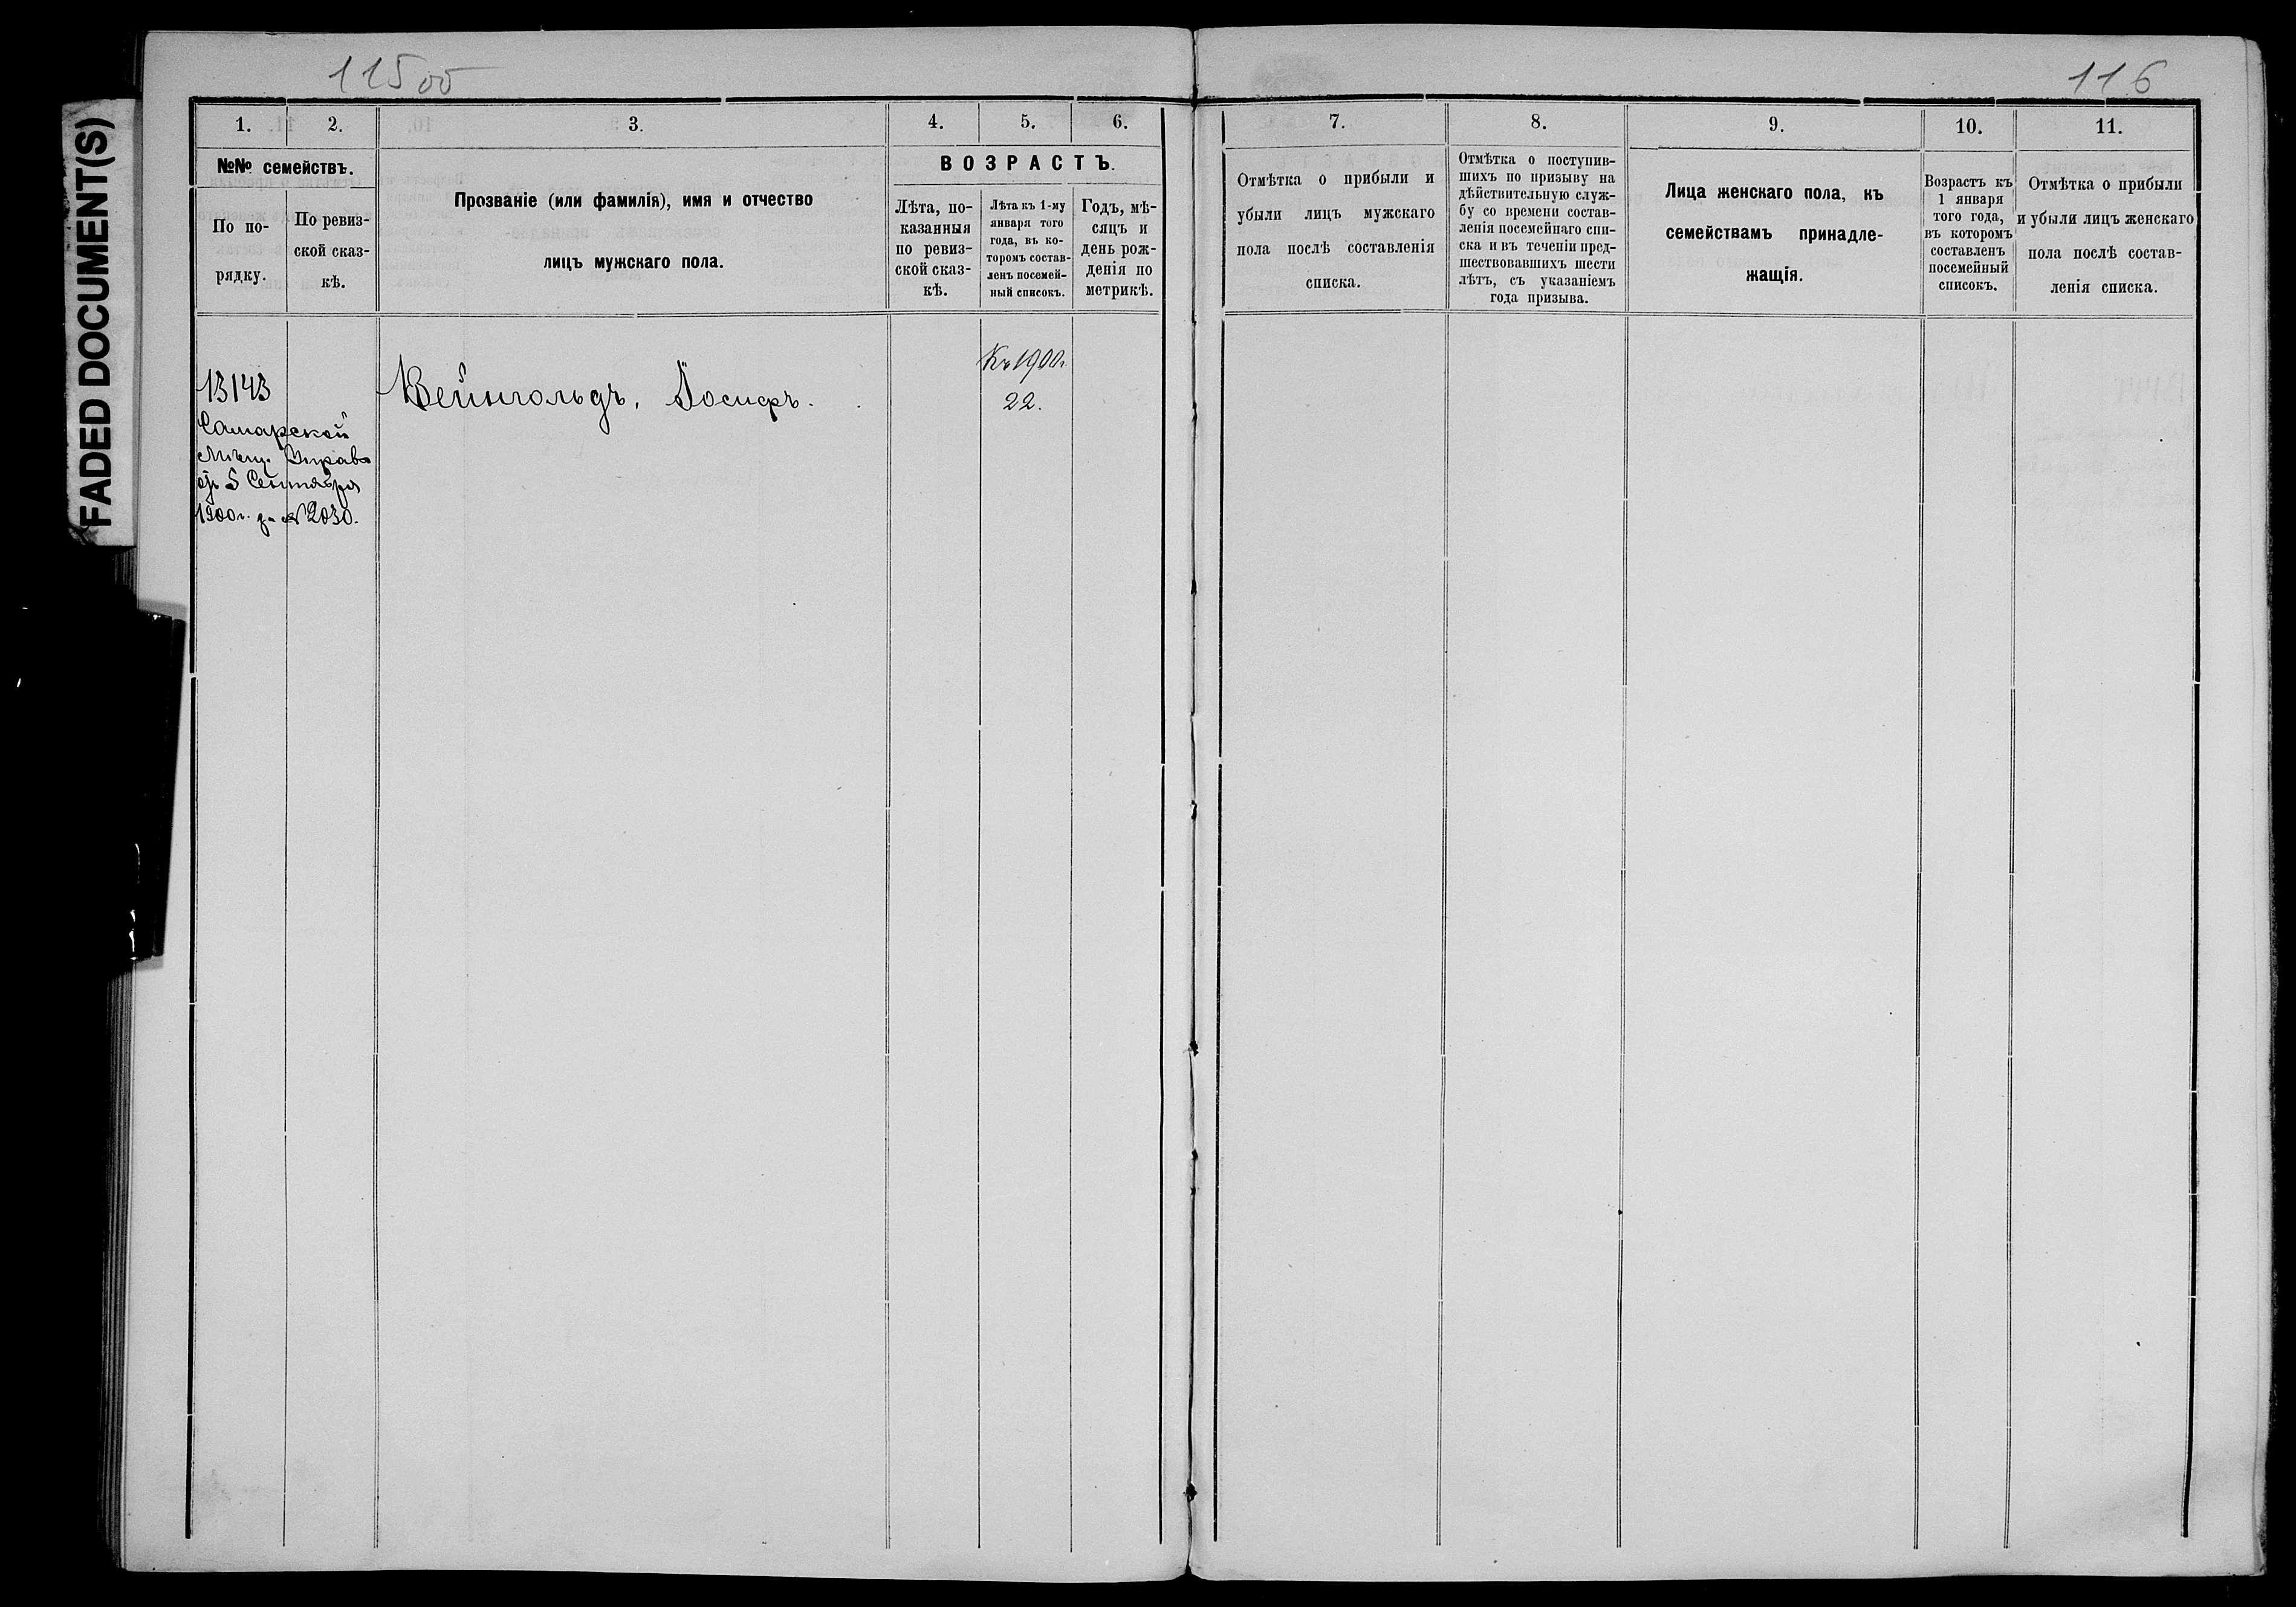 FADED DOCUMENT(S)
115об
116
1. 2. 3. 4. 5. 6.
№№ семействъ.
По по-
рядку.
По ревиз-
ской сказ-
кѣ.
Прозваніе (или фамилія), имя и отчество
лицъ мужскаго пола.
ВОЗРАСТЪ.
Лѣта, по-
казанныя
по ревиз-
ской сказ-
кѣ.
Лѣта къ 1-му
января того
года, въ ко-
торомъ состав-
ленъ посемей-
ный списокъ.
Годъ, мѣ-
сяцъ и
день рож-
денія по
метрикѣ.
7. 8. 9. 10. 11.
Отмѣтка о прибыли и
убыли лицъ мужскаго
пола послѣ составленія
списка.
Отмѣтка о поступив-
шихъ по призыву на
дѣйствительную служ-
бу со времени состав-
ленія посемейнаго спи-
ска и въ теченіи пред-
шествовавшихъ шести
лѣтъ, съ указаніемъ
года призыва.
Лица женскаго пола, къ
семействамъ принадле-
жащія.
Возрастъ къ
1 января
того года,
въ которомъ
составленъ
посемейный
списокъ.
Отмѣтка о прибыли
и убыли лицъ женскаго
пола послѣ состав-
ленія списка.
13143
Самарской
Мѣщ. Управ
5 Сентября
1900г. за № 2030.
Вейнгольдъ, Іосифъ.
Къ 1900г.
22.